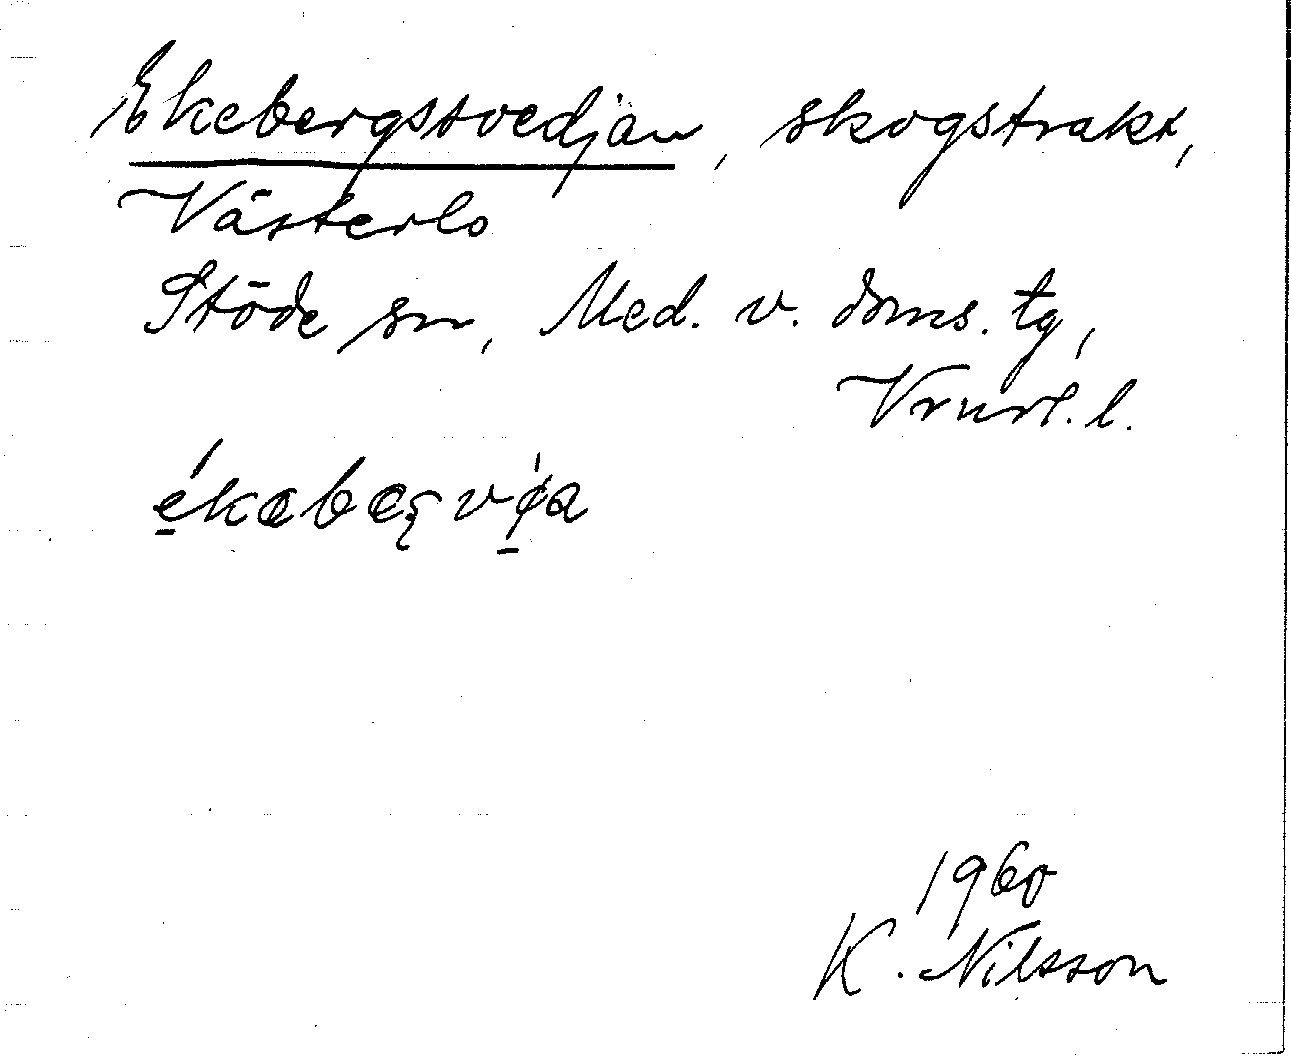 Ekebergssvedjan, skogstrakt,
Västerlo
Stöde sn, Med. v. doms. tg,
Vnorl. l.
1960
K. Nilsson